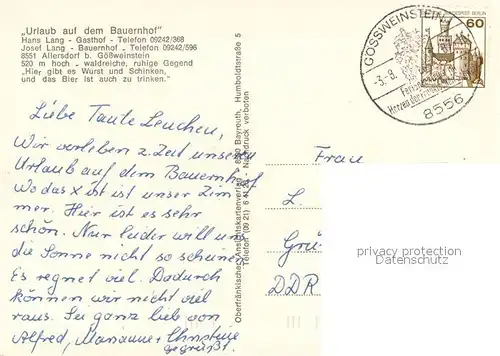 „Urlaub auf dem Bauernhof"
Hans Lang - Gasthof - Telefon 09242/368
Josef Lang - Bauernhof - Telefon 09242/596
8551 Allersdorf b. Gößweinstein
520 m hoch - waldreiche, ruhige Gegend
"Hier gibt es Wurst und Schinken,
und das Bier ist auch zu trinken."
Liebe Tante Lenchen,
Wir verleben z. Zeit unseren
Urlaub auf dem Bauernhof
Wo das X ist ist unser Zim-
mer. Hier ist es sehr
schön. Nur leider will uns
die Sonne nicht so scheinen
Es regnet viel. Dadurch
können wir nicht viel
raus. Sei ganz lieb von
Alfred, Marianne + Christine
gegrüßt.
Oberfränkischer Ansichtskartenverlag 8580 Bayreuth, Humboldtstraße 5
Telefon (09 21) 6 41 - Nachdruck verboten
GÖSSWEINSTEIN
-3.-8.
Herzen der
8556
DEUTSCHE BUNDESPOST BERLIN
60
Frau
L.
Grü
DDR
privacy protection
Datenschutz